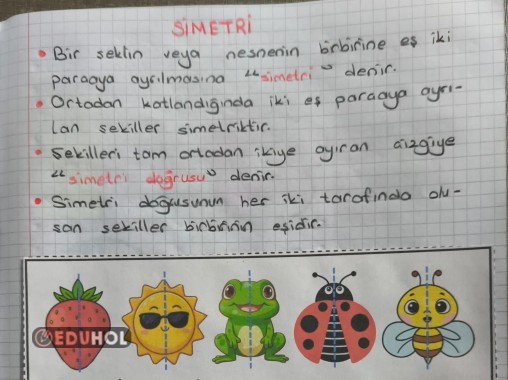 SİMETRİ
• Bir şeklin veya nesnenin birbirine eş iki
parçaya ayrılmasına "simetri" denir.
• Ortadan katlandığında iki eş parçaya ayrı-
lan şekiller simetriktir.
• Şekilleri tam ortadan ikiye ayıran çizgiye
"simetri doğrusu" denir.
• Simetri doğrusunun her iki tarafında olu-
şan şekiller birbirinin eşidir.
EDUHOL